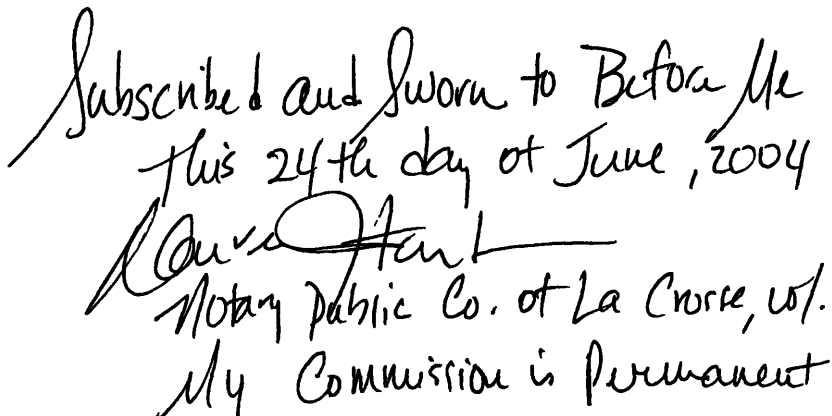 Subscribed and Sworn to Before Me
this 24th day of June, 2004
Notary Public Co. of La Crosse, WI.
My Commission is Permanent